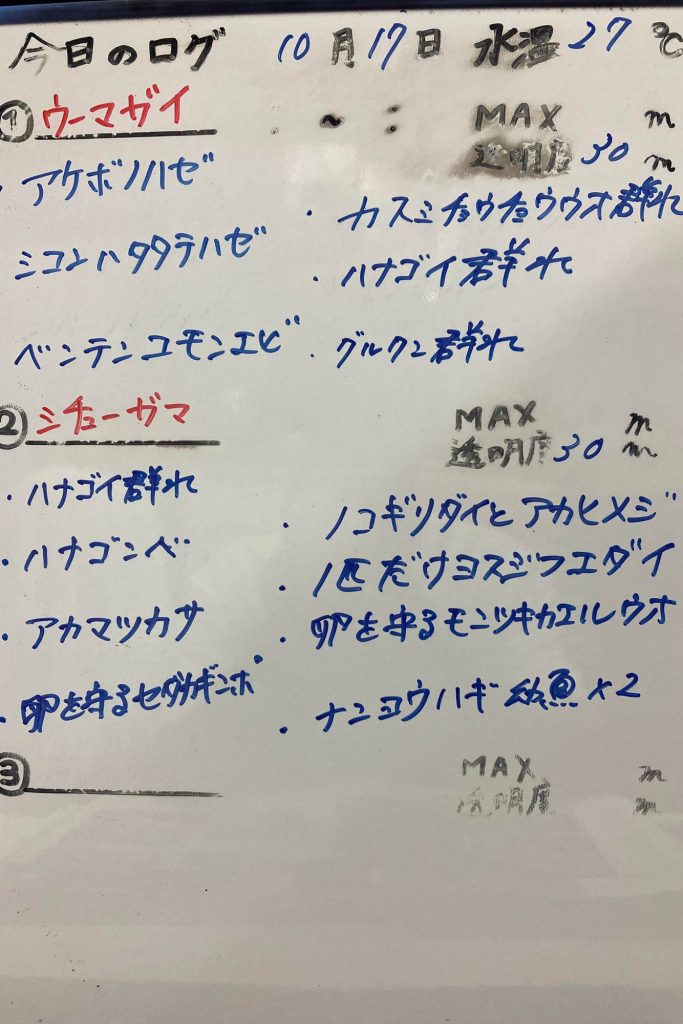 今日のログ 10月17日 水温27℃
① ウーマガイ . ~ : MAX m
透明度30m
・アケボノハゼ
・カスミチョウチョウウオ群れ
シコンハタタテハゼ
・ハナゴイ群れ
ベンテンコモンエビ
・グルクン群れ
② シチューガマ MAX m
透明度30m
・ハナゴイ群れ
・ノコギリダイとアカヒメジ
・ハナゴンベ
・1匹だけヨスジフエダイ
・アカマツカサ
・卵を守るモンツキカエルウオ
・卵を守るセダカギンポ
・ナンヨウハギ幼魚×2
③ MAX m
透明度 m